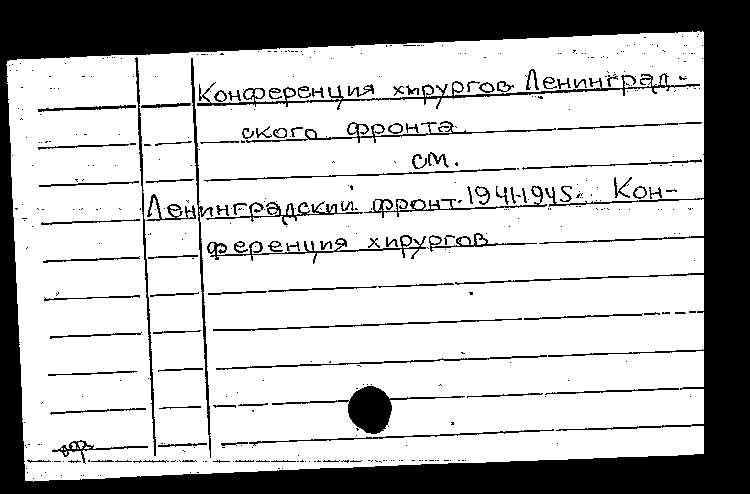 Конференция хирургов Ленинград-
ского фронта
см.
Ленинградский фронт. 1941-1945. Кон-
ференция хирургов